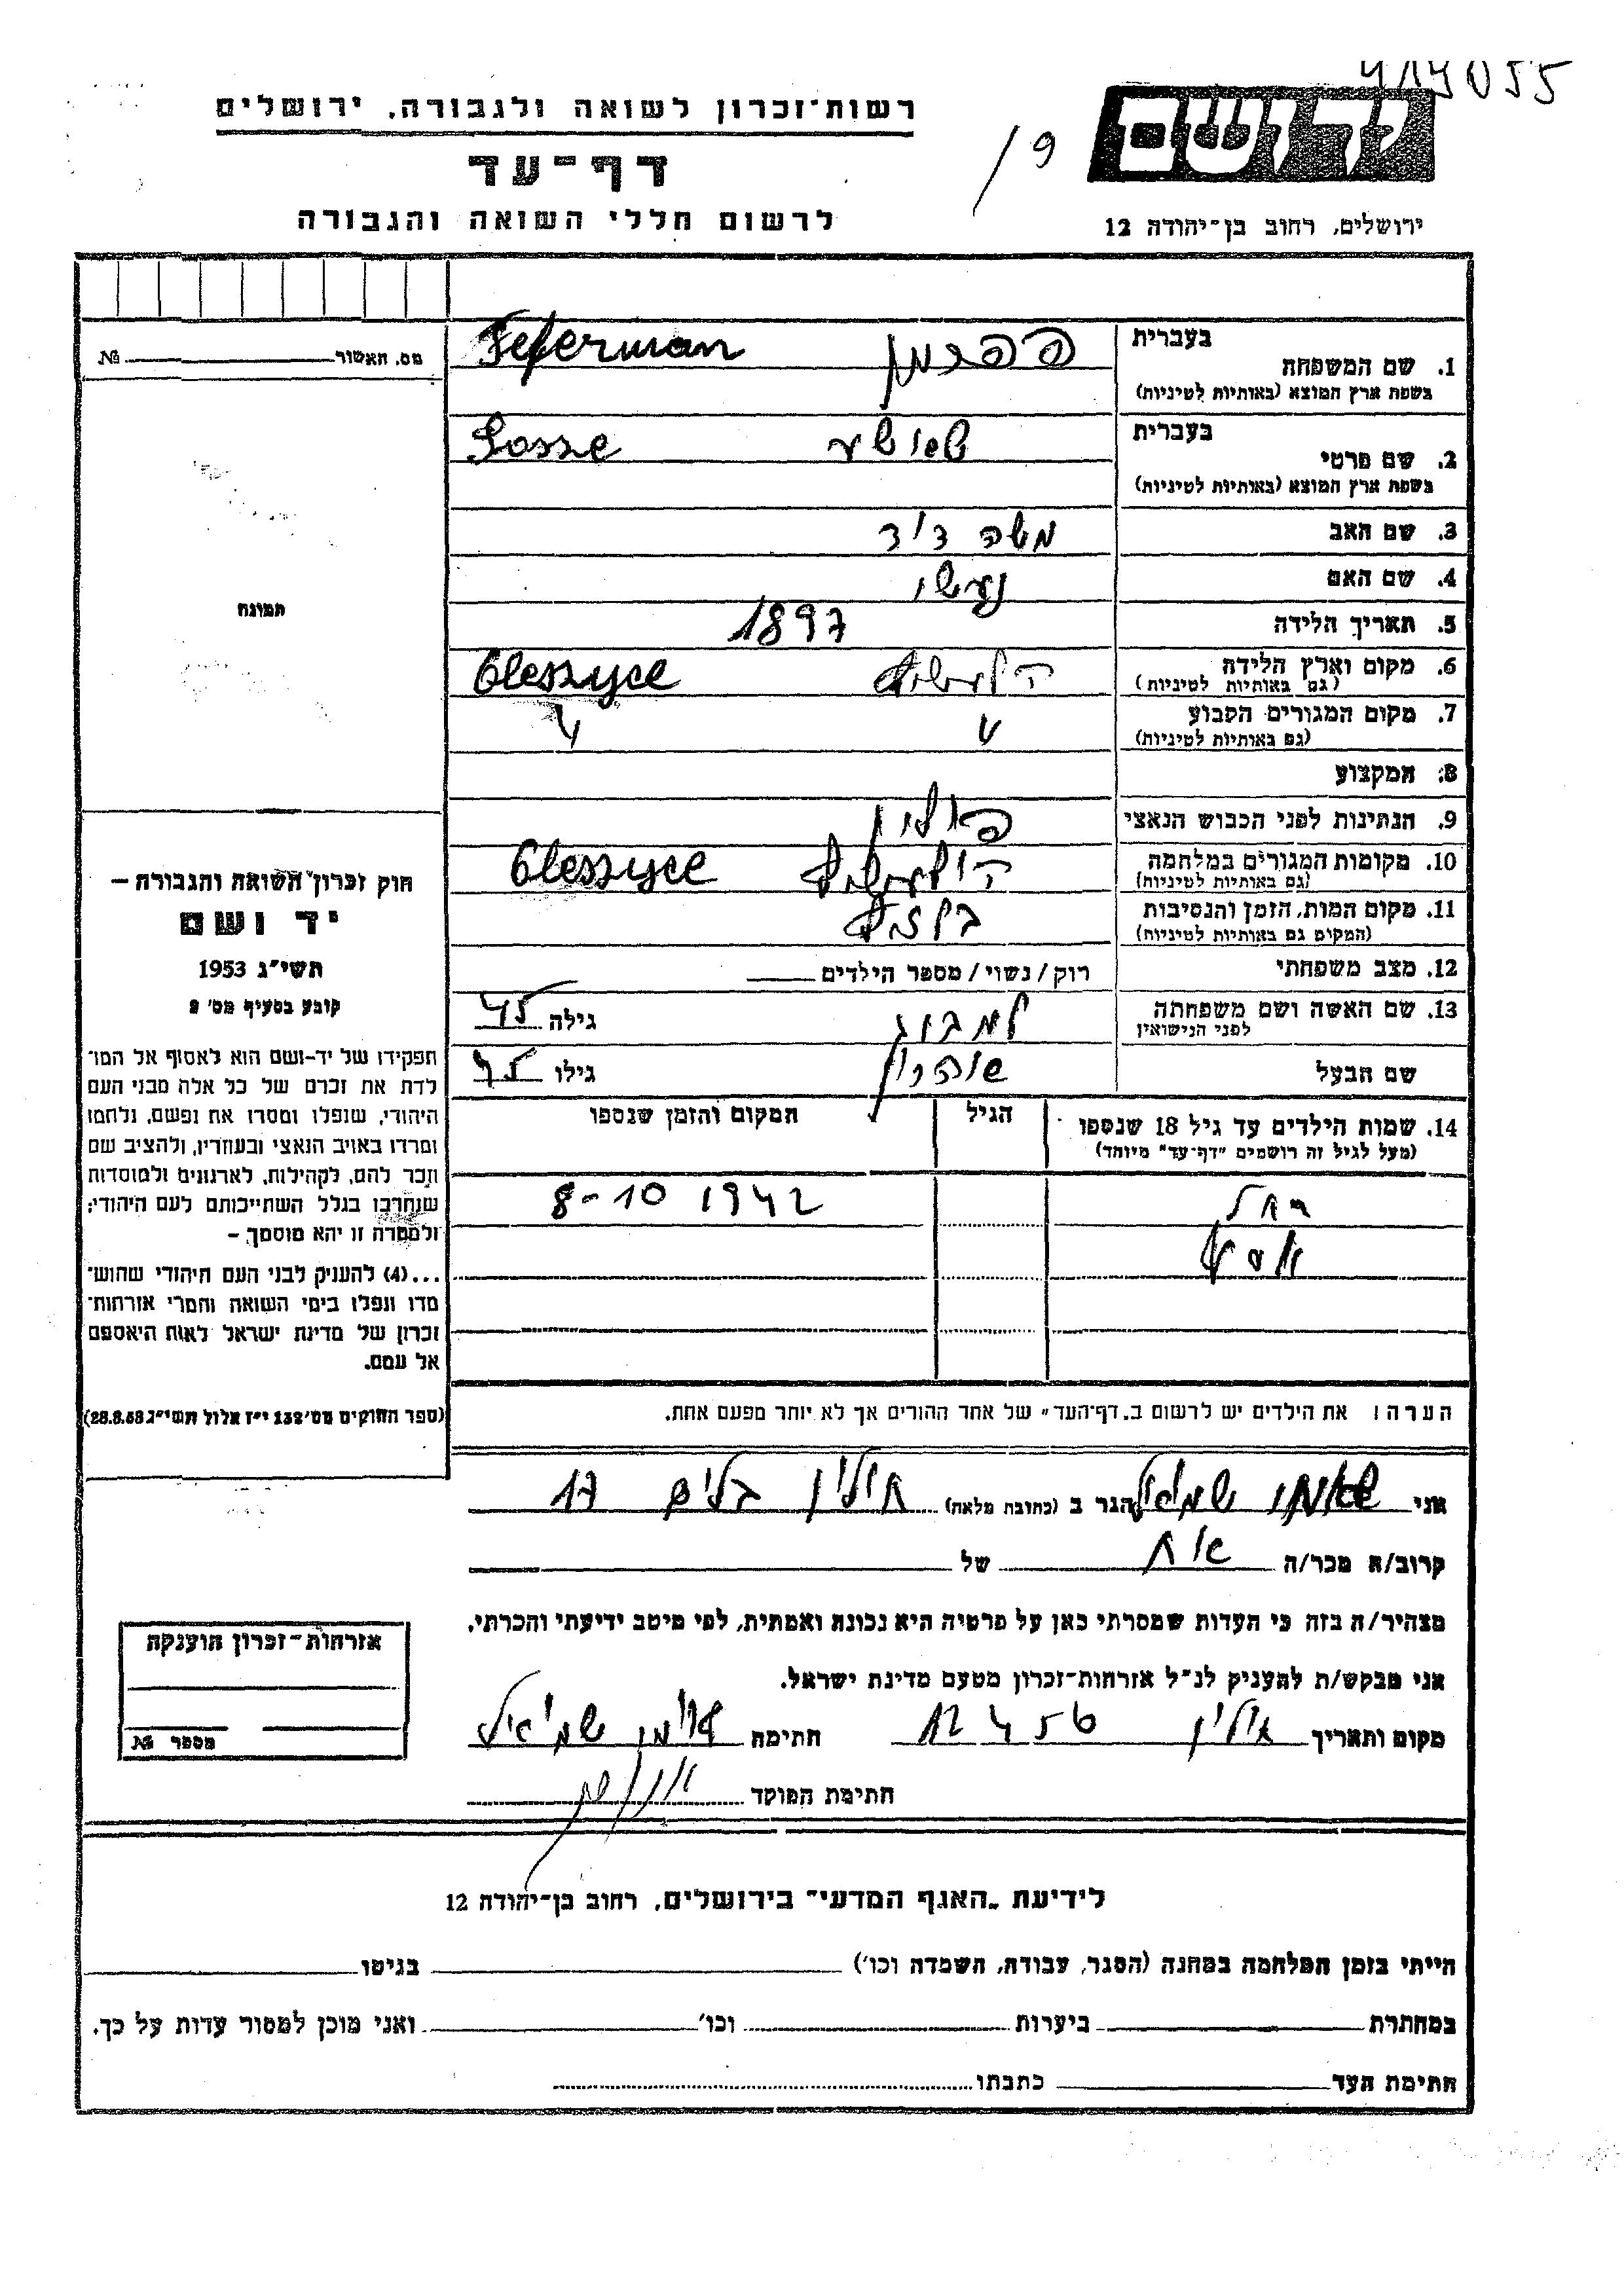 רשות־זכרון לשואה ולגבורה, ירושלים
דף־עד
לרשום חללי השואה והגבורה
ירושלים, רחוב בן־יהודה 12
מס. האשור № 
בעברית
1. שם המשפחה
בשפת ארץ המוצא (באותיות לטיניות)
פפרמן Feferman
בעברית
2. שם פרטי
בשפת ארץ המוצא (באותיות לטיניות)
3. שם האב משה דוד
4. שם האם
5. תאריך הלידה 1897
6. מקום וארץ הלידה
(גם באותיות לטיניות)
Oleszyce
7. מקום המגורים הקבוע
(גם באותיות לטיניות)
8. המקצוע
9. הנתינות לפני הכבוש הנאצי פולין
10. מקומות המגורים במלחמה
(גם באותיות לטיניות)
Oleszyce
11. מקום המות, הזמן והנסיבות
(המקום גם באותיות לטיניות)
12. מצב משפחתי רוק / נשוי / מספר הילדים
13. שם האשה ושם משפחתה
לפני הנישואין
גילה 45
שם הבעל
גילו 45
14. שמות הילדים עד גיל 18 שנספו
(מעל לגיל זה רושמים "דף־עד" מיוחד)
הגיל
המקום והזמן שנספו
רחל 8-10 1942
הערה: את הילדים יש לרשום ב„דף־העד" של אחד ההורים אך לא יותר מפעם אחת.
תמונה
חוק זכרון השואה והגבורה –
יד ושם
תשי"ג 1953
קובע בסעיף מס' 2
תפקידו של יד-ושם הוא לאסוף אל המו־
לדת את זכרם של כל אלה מבני העם
היהודי, שנפלו ומסרו את נפשם, נלחמו
ומרדו באויב הנאצי ובעוזריו, ולהציב שם
וזכר להם, לקהילות, לארגונים ולמוסדות
שנחרבו בגלל השתייכותם לעם היהודי;
ולמטרה זו יהא מוסמך –
...(4) להעניק לבני העם היהודי שהוש־
מדו ונפלו בימי השואה והמרי אזרחות־
זכרון של מדינת ישראל לאות היאספם
אל עמם.
(ספר החוקים מס' 132 י"ז אלול תשי"ג 28.8.53)
אני הגר ב (כתובת מלאה) חולון 17
קרוב/ה מכר/ה אח של
מצהיר/ה בזה כי העדות שמסרתי כאן על פרטיה היא נכונה ואמתית, לפי מיטב ידיעתי והכרתי.
אני מבקש/ת להעניק לנ"ל אזרחות־זכרון מטעם מדינת ישראל.
מקום ותאריך 12 4 56 חתימה
חתימת הפוקד
אזרחות־זכרון הוענקה
מספר №
לידיעת „האגף המדעי" בירושלים, רחוב בן־יהודה 12
הייתי בזמן המלחמה במחנה (הסגר, עבודה, השמדה וכו') בגיטו
במחתרת ביערות וכו' ואני מוכן למסור עדות על כך.
חתימת העד כתבתו